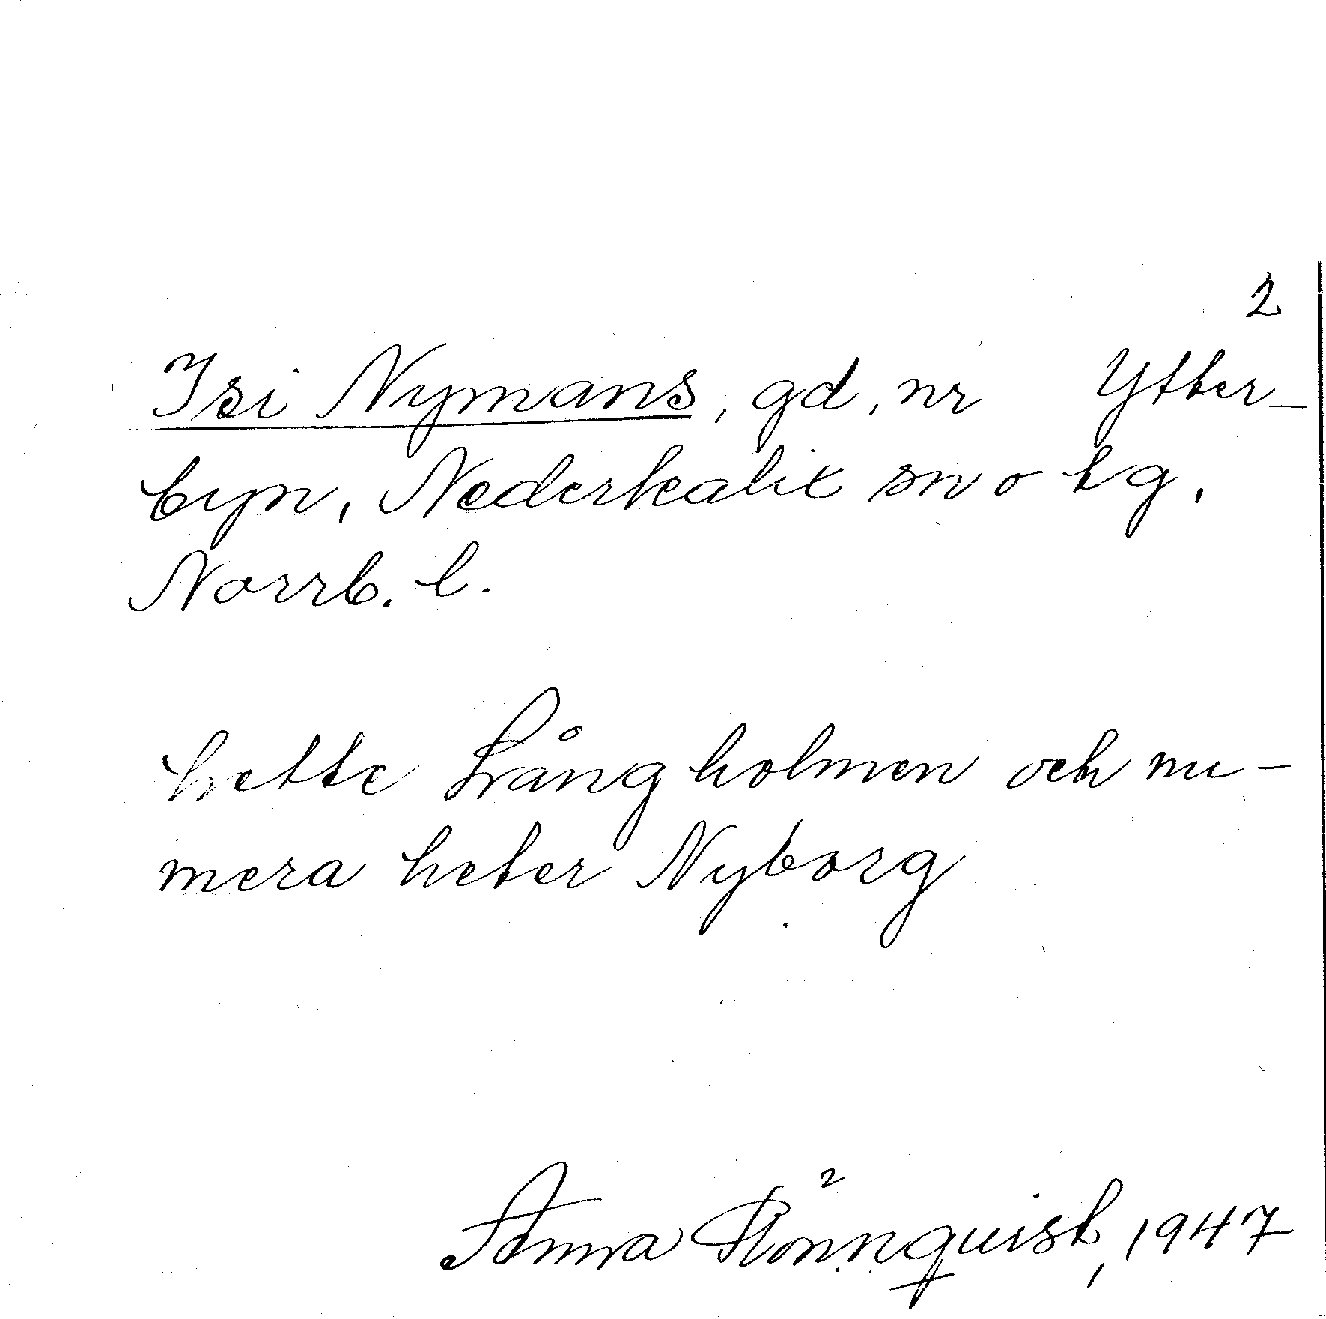 2
Isi Nymans, gd, nr Ytter-
byn, Nederkalix sn o tg,
Norrb. l.
hette Långholmen och nu-
mera heter Nyborg
Anna Rönnquist, 1947